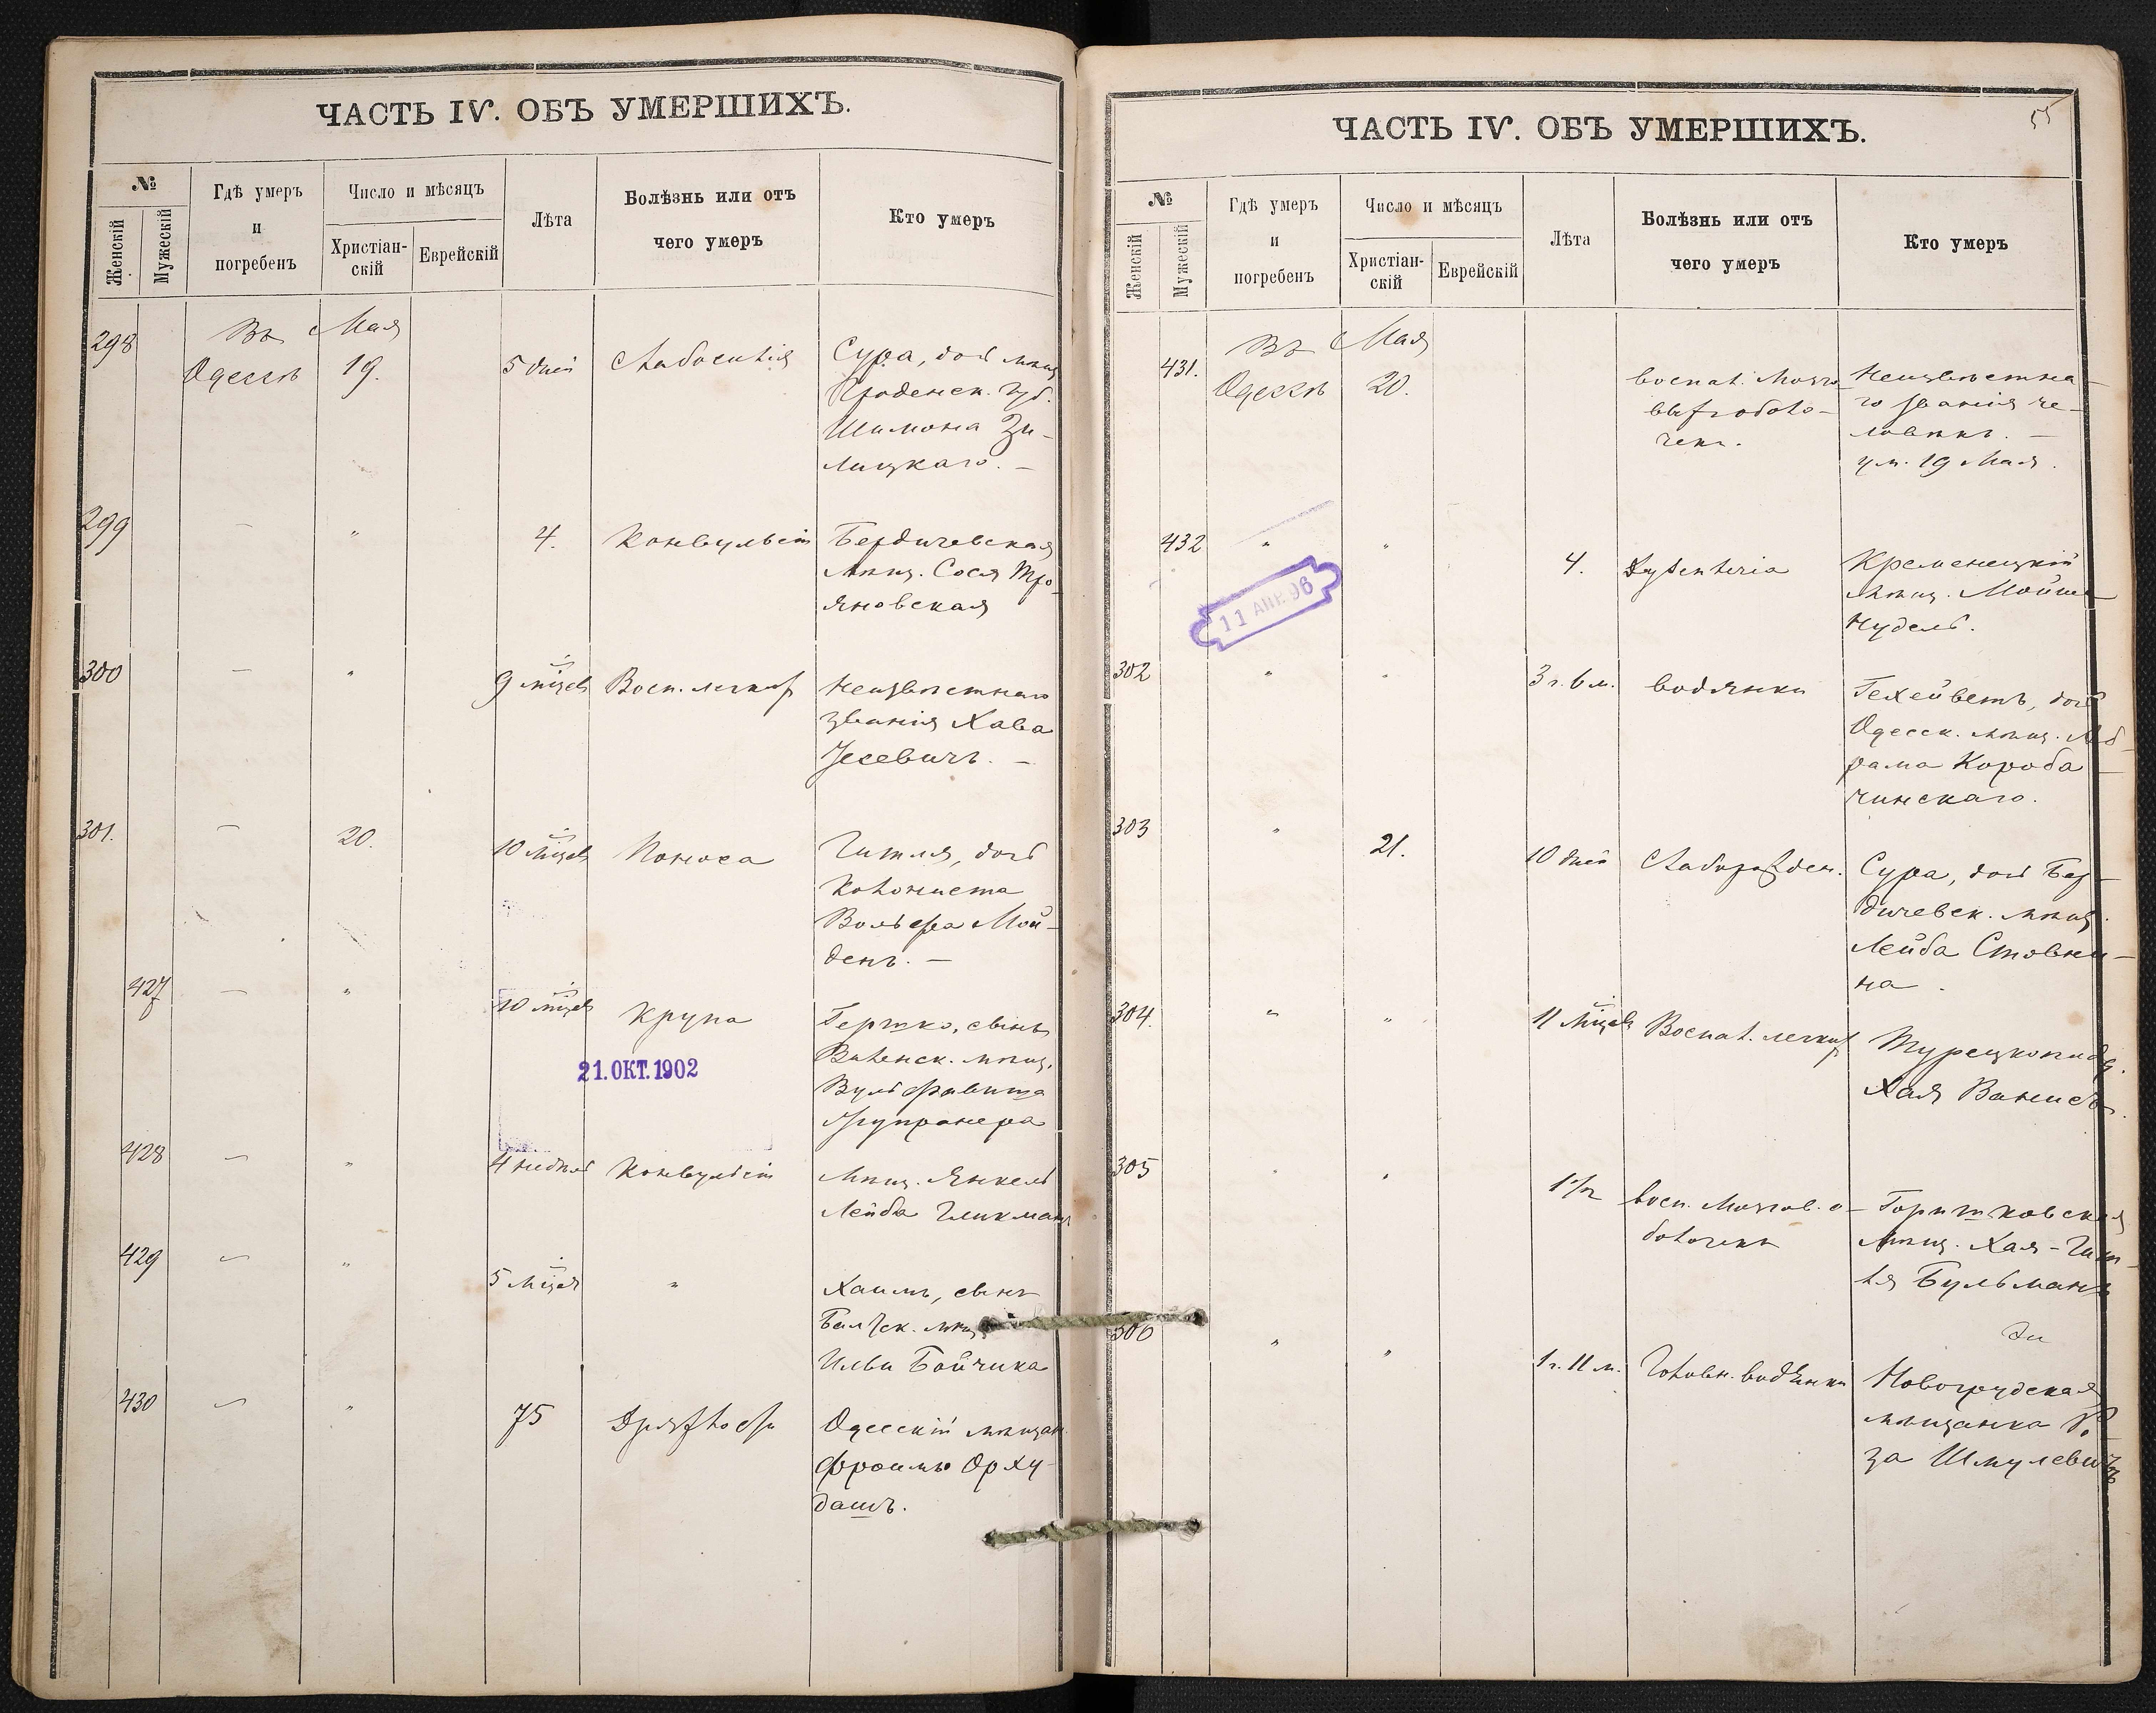 ЧАСТЬ IV. ОБЪ УМЕРШИХЪ.
№
Женскій
Мужескій
Гдѣ умеръ
и
погребенъ
Число и мѣсяцъ
Христіан-
скій
Еврейскій
Лѣта
Болѣзнь или отъ
чего умеръ
Кто умеръ
298
Въ
Одессѣ
Мая
19.
5 дней
Слабосилія
Сура, дочь мѣщ
Гроденск. губ.
Шимона Зи-
лицкаго. —
299
—
"
4.
Конвульсіи
Бердичевская
мѣщ. Сося Тро-
яновская
300
—
"
9 мѣсцевъ
Восп. легких
Неизвѣстнаго
званія Хава
301.
—
20.
10 мѣсцевъ
Поноса
Гитля, дочь
Колониста
Вольфа Мой-
денъ. —
427
—
"
10 мѣсцевъ
Крупа
Гершко, сынъ
Виленск. мѣщ.
21. ОКТ. 1902
428
—
"
4 недѣли
Конвульсіи
Мѣщ. Янкель
Лейба Гликманъ
429
—
"
5 мѣсцев
"
Хаимъ, сынъ
Балтск. мѣщ
Ильи Бойчика
430
—
"
75
Дряхлости
Одесскій мѣщан.
Фроимъ Орху-
дашъ.
55
ЧАСТЬ IV. ОБЪ УМЕРШИХЪ.
№
Женскій
Мужескій
Гдѣ умеръ
и
погребенъ
Число и мѣсяцъ
Христіан-
скій
Еврейскій
Лѣта
Болѣзнь или отъ
чего умеръ
Кто умеръ
431.
Въ
Одессѣ
Мая
20.
воспал. Мозго-
выхъ оболо-
чекъ.
Неизвѣстна-
го званія че-
ловѣкъ. —
ум. 19 Мая.
432
"
"
4.
Dysenteria
Кременецкій
мѣщ. Мойше
Нудель.
11 АПР. 96
302
"
"
3 г. 6 м.
водянки
Гехейветъ, дочь
Одесск. мѣщ. Аб-
рама Короба-
чинскаго.
303
"
21.
10 дней
Слаборожден.
Сура, дочь Бер-
дичевск. мѣщ.
Лейба Стовни-
на.
304.
"
"
11 мѣсцевъ
Воспал. легких
Турецкоподд.
Хая
305
"
"
1 1/2
восп. Мозгов. о-
болочекъ
мѣщ. Хая-Гит-
ля Бульманъ
306
"
"
1 г. 11 м.
Головн. водянки
Новогрудская
мѣщанка Ро-
за Шмулевичъ